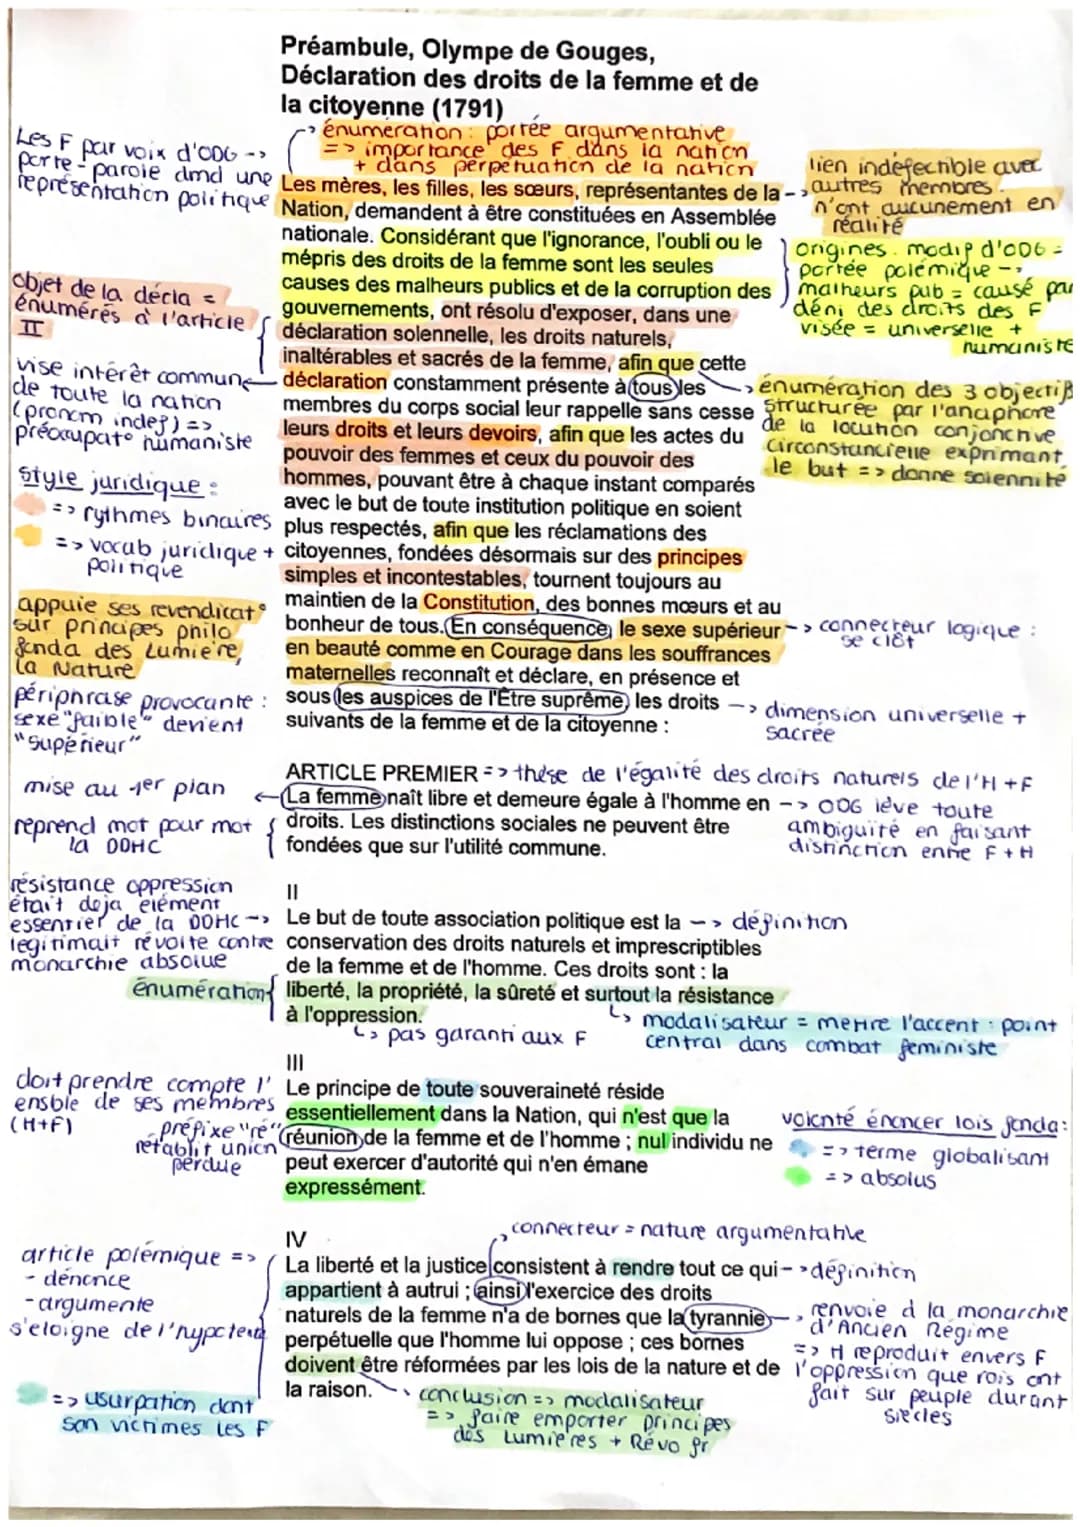 Préambule, Olympe de Gouges,
Déclaration des droits de la femme et de
la citoyenne (1791)
énumération : portée argumentative
=> importance des F dans la nation
+ dans perpétuation de la nation
Les F par voix d'ODG ->
porte-parole dmd une
représentation politique
lien indéfectible avec
autres membres.
n'ont aucunement en
réalité
Les mères, les filles, les sœurs, représentantes de la
Nation, demandent à être constituées en Assemblée
nationale. Considérant que l'ignorance, l'oubli ou le
mépris des droits de la femme sont les seules
causes des malheurs publics et de la corruption des
gouvernements, ont résolu d'exposer, dans une
déclaration solennelle, les droits naturels,
inaltérables et sacrés de la femme, afin que cette
déclaration constamment présente à tous les
membres du corps social leur rappelle sans cesse
leurs droits et leurs devoirs, afin que les actes du
pouvoir des femmes et ceux du pouvoir des
hommes, pouvant être à chaque instant comparés
avec le but de toute institution politique en soient
plus respectés, afin que les réclamations des
citoyennes, fondées désormais sur des principes
simples et incontestables, tournent toujours au
maintien de la Constitution, des bonnes mœurs et au
bonheur de tous. En conséquence, le sexe supérieur
en beauté comme en Courage dans les souffrances
maternelles reconnaît et déclare, en présence et
sous les auspices de l'Être suprême, les droits
suivants de la femme et de la citoyenne :
origines. modif d'ODG =
portée polémique ->
malheurs pub = causé par
déni des droits des F
visée = universelle +
humaniste
objet de la décla =
énumérés à l'article
II
vise intérêt commun
de toute la nation
(pronom indef) =>
préoccupat° humaniste
style juridique :
=> rythmes binaires
=> vocab juridique +
politique
énumération des 3 objectifs
structurée par l'anaphore
de la locution conjonctive
circonstancielle exprimant
le but => donne solennité
appuie ses revendicat°
sur principes philo
fonda des Lumière,
la Nature
périphrase provocante :
sexe "faible" devient
"supérieur"
-> connecteur logique :
se clôt
-> dimension universelle +
sacrée
ARTICLE PREMIER => thèse de l'égalité des droits naturels de l'H + F
mise au 1er plan
La femme naît libre et demeure égale à l'homme en
droits. Les distinctions sociales ne peuvent être
fondées que sur l'utilité commune.
reprend mot pour mot
la DDHC
-> ODG lève toute
ambiguité en faisant
distinction entre F + H
II
Le but de toute association politique est la -> définition
conservation des droits naturels et imprescriptibles
de la femme et de l'homme. Ces droits sont : la
liberté, la propriété, la sûreté et surtout la résistance
à l'oppression.
résistance oppression
était deja élément
essentiel de la DDHC ->
légitimait révolte contre
monarchie absolue
énumération
-> pas garanti aux F
-> modalisateur = mettre l'accent : point
central dans combat féministe
III
Le principe de toute souveraineté réside
essentiellement dans la Nation, qui n'est que la
réunion de la femme et de l'homme ; nul individu ne
peut exercer d'autorité qui n'en émane
expressément.
doit prendre compte l'
ensble de ses membres
(H+F)
préfixe "ré"
rétablit union
perdue
volonté énoncer lois fonda :
=> terme globalisant
=> absolus
IV
connecteur = nature argumentative
La liberté et la justice consistent à rendre tout ce qui -> définition
appartient à autrui ; ainsi l'exercice des droits
naturels de la femme n'a de bornes que la tyrannie
perpétuelle que l'homme lui oppose ; ces bornes
doivent être réformées par les lois de la nature et de
la raison.
article polémique =>
- dénonce
- argumente
=> usurpation dont
son victimes les F
renvoie à la monarchie
d'Ancien Régime
=> H reproduit envers F
l'oppression que rois ont
fait sur peuple durant
siècles
conclusion => modalisateur
=> faire emporter principes
des Lumières + Révo fr